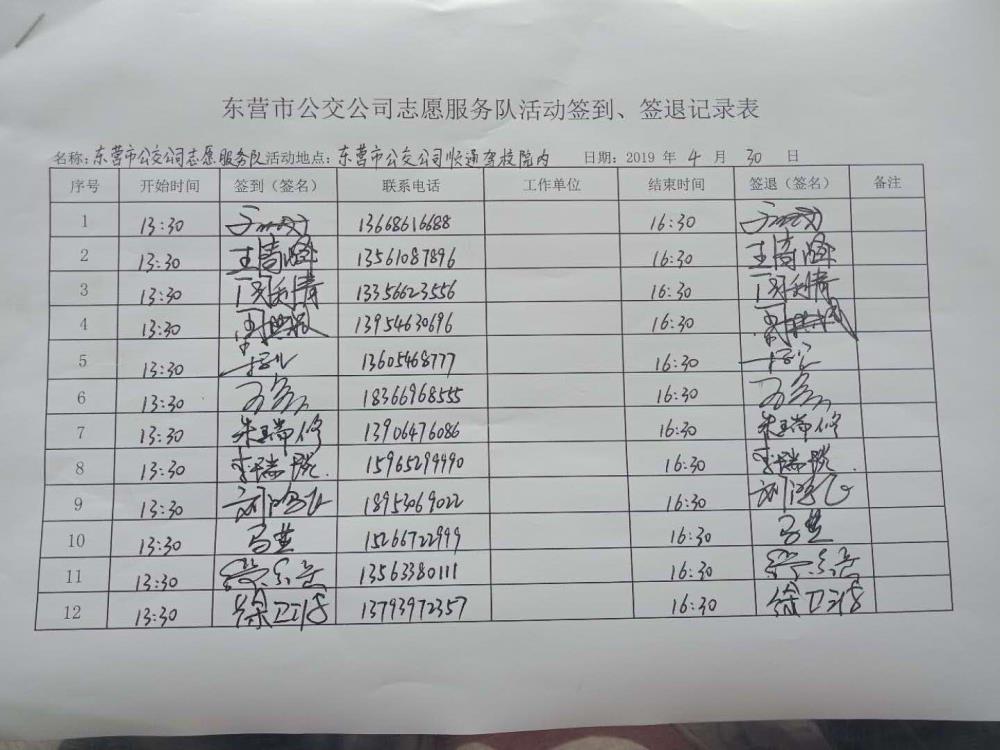 东营市公交公司志愿服务队活动签到、签退记录表
名称：东营市公交公司志愿服务队 活动地点：东营市公交公司顺通驾校院内 日期：2019 年 4 月 30 日
序号 开始时间 签到（签名） 联系电话 工作单位 结束时间 签退（签名） 备注
1 13:30 13668616688 16:30
2 13:30 13561087896 16:30
3 13:30 周利青 13356623556 16:30 周利青
4 13:30 13954630696 16:30
5 13:30 13605468777 16:30
6 13:30 18366968555 16:30
7 13:30 朱瑞修 13906476086 16:30 朱瑞修
8 13:30 李瑞悦 15965299490 16:30 李瑞悦
9 13:30 18953469022 16:30
10 13:30 马芝 15266722999 16:30 马芝
11 13:30 13563380111 16:30
12 13:30 徐卫清 13793972357 16:30 徐卫清